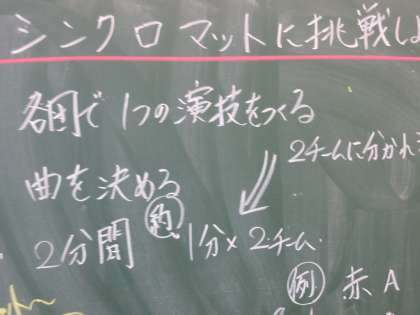 シンクロマットに挑戦し
各団で1つの演技をつくる
2チームに分かれ
曲を決める
約
2分間 1分×2チーム
例 赤A